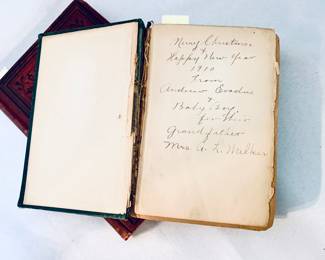 Merry Christmas
&
Happy New Year
1910
From
Andrew Exodus
&
Baby Boy
for His
Grandfather
Mrs A. L. Walker